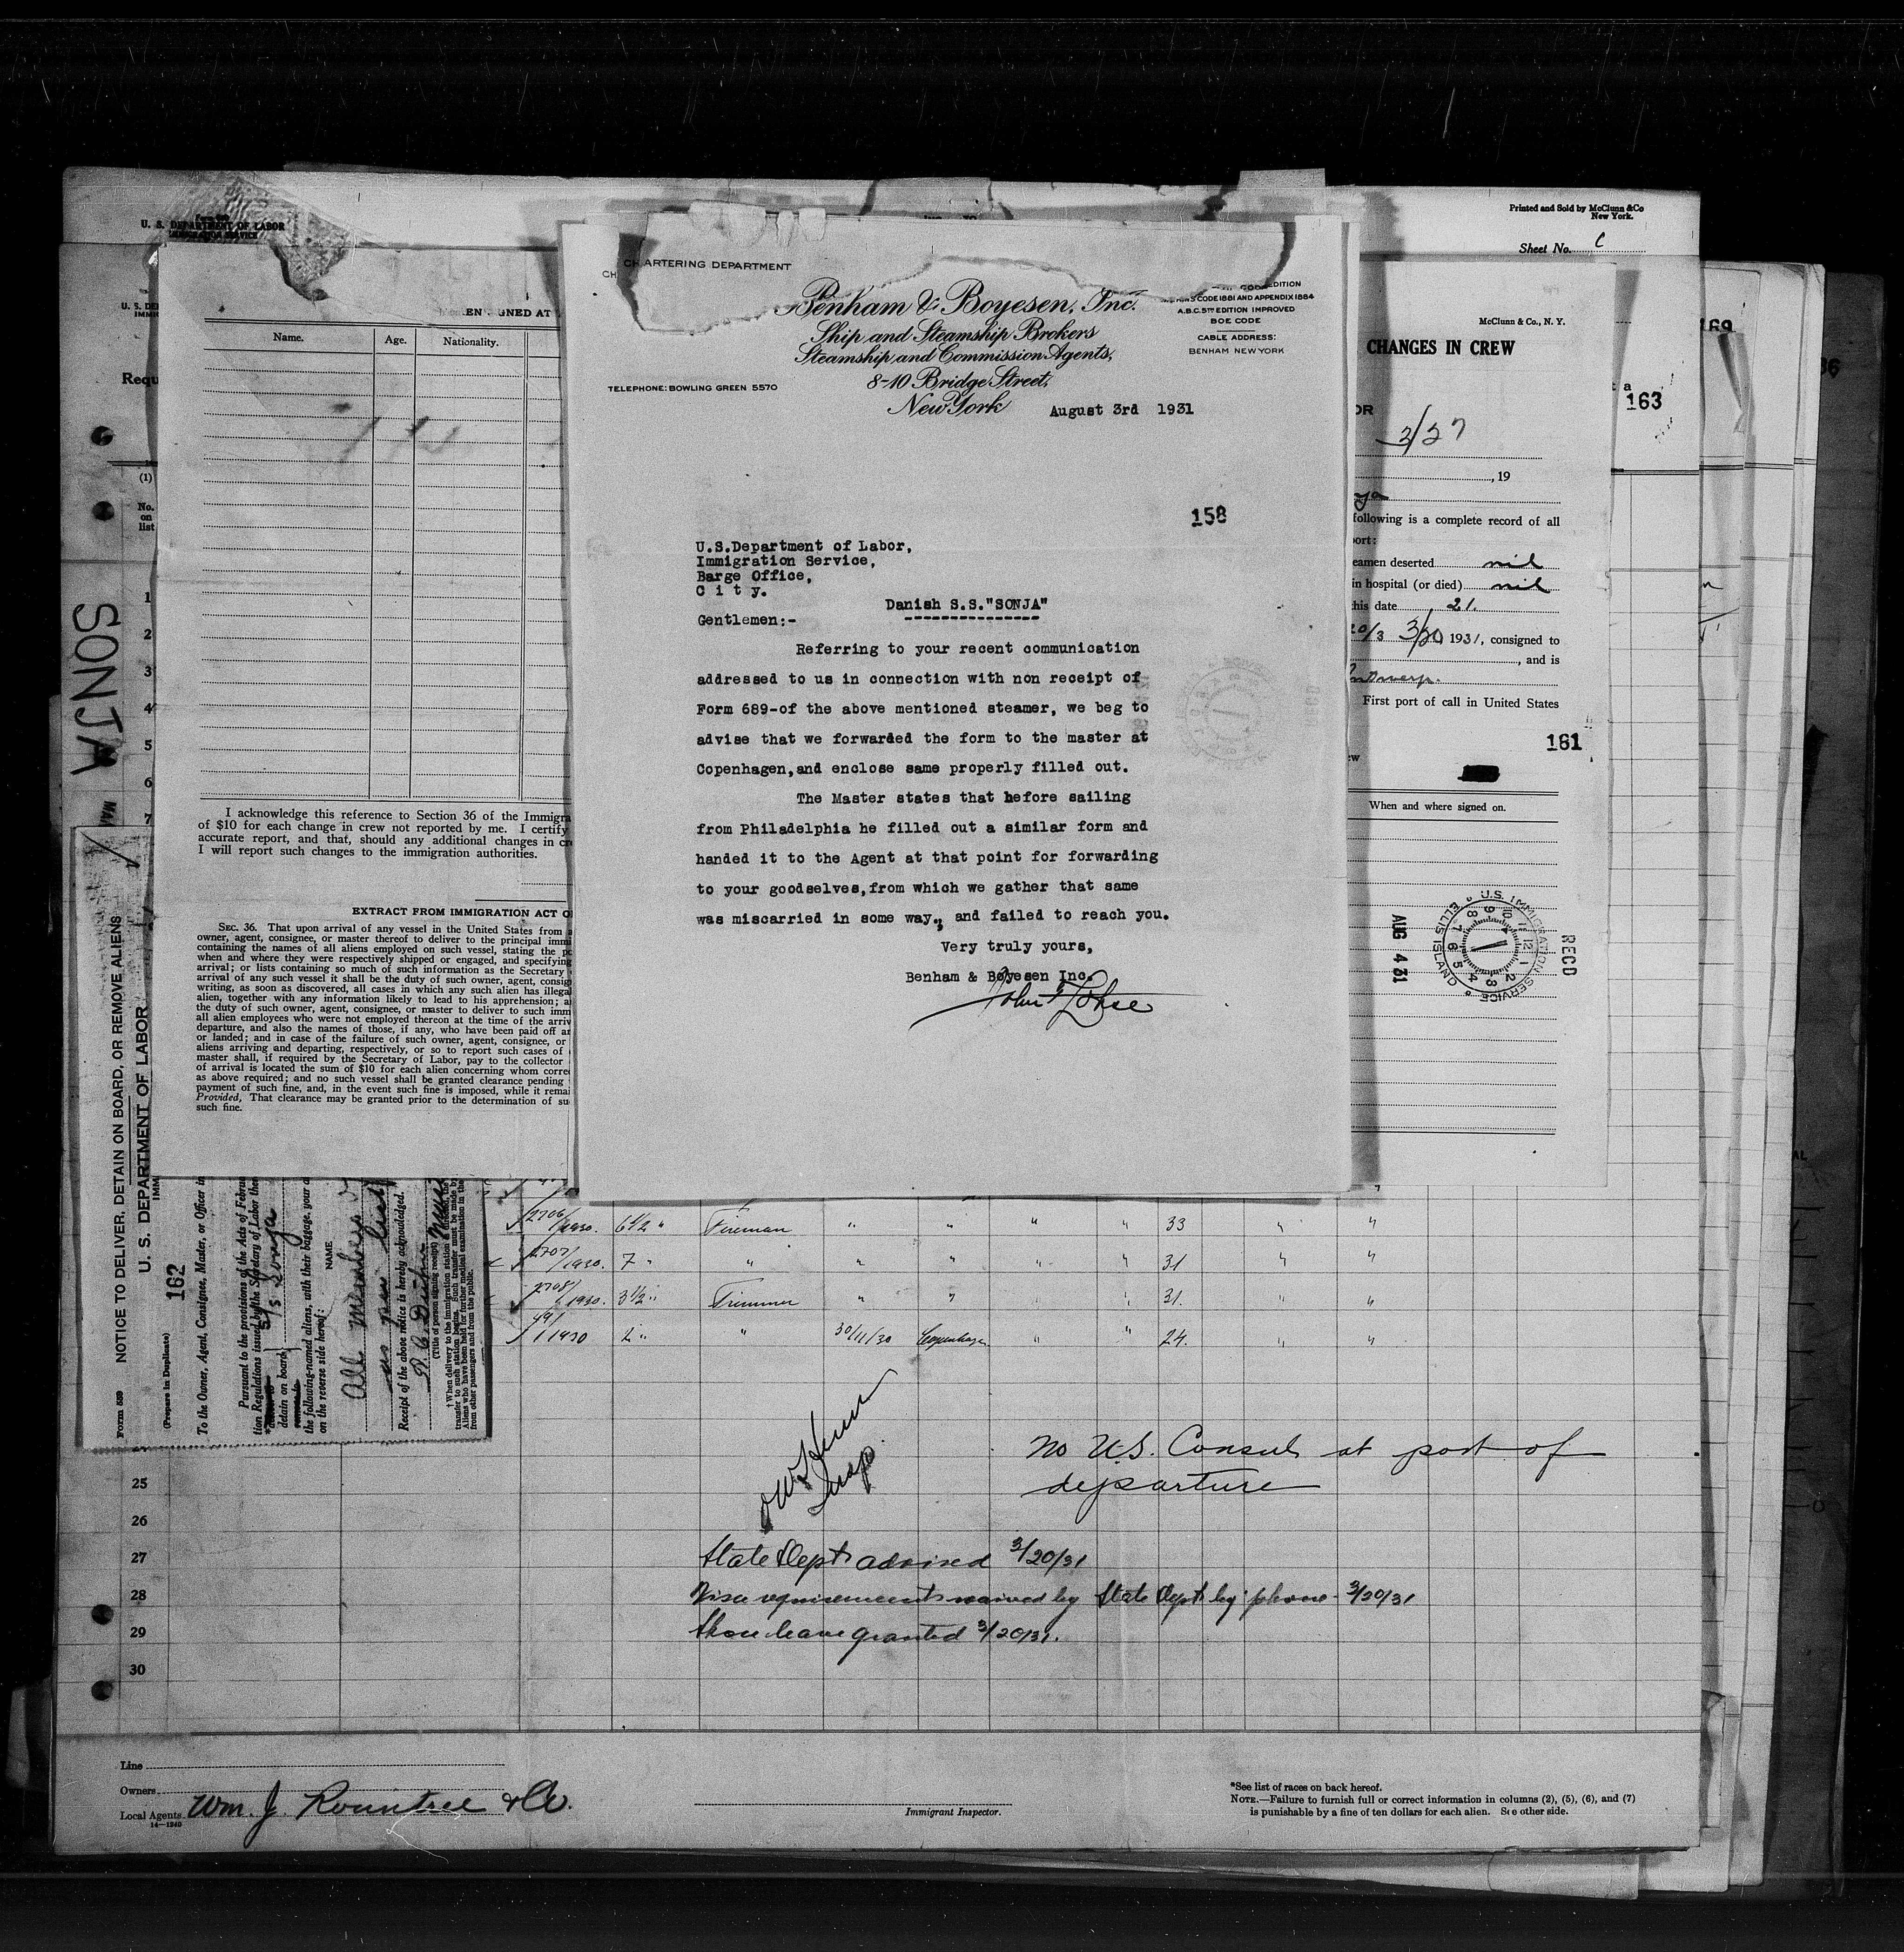 Form 689
U. S. DEPARTMENT OF LABOR
IMMIGRATION SERVICE
Printed and Sold by McClunn &Co
New York.
Sheet No. C
169
163
36
SONJA
Requ
(1)
No.
on
list
1
2
3
4
5
6
7
EN SIGNED AT
Name.
Age.
Nationality.
I acknowledge this reference to Section 36 of the Immigra
of $10 for each change in crew not reported by me. I certify
accurate report, and that, should any additional changes in cr
I will report such changes to the immigration authorities.
EXTRACT FROM IMMIGRATION ACT O
SEC. 36. That upon arrival of any vessel in the United States from
owner, agent, consignee, or master thereof to deliver to the principal immi
containing the names of all aliens employed on such vessel, stating the po
when and where they were respectively shipped or engaged, and specifying
arrival; or lists containing so much of such information as the Secretary
arrival of any such vessel it shall be the duty of such owner, agent, consig
writing, as soon as discovered, all cases in which any such alien has illegal
alien, together with any information likely to lead to his apprehension; a
the duty of such owner, agent, consignee, or master to deliver to such imm
all alien employees who were not employed thereon at the time of the arriv
departure, and also the names of those, if any, who have been paid off a
or landed; and in case of the failure of such owner, agent, consignee, or
aliens arriving and departing, respectively, or so to report such cases of
master shall, if required by the Secretary of Labor, pay to the collector
of arrival is located the sum of $10 for each alien concerning whom corre
as above required; and no such vessel shall be granted clearance pending
payment of such fine, and, in the event such fine is imposed, while it remai
Provided, That clearance may be granted prior to the determination of su
such fine.
CHARTERING DEPARTMENT
Benham & Boyesen, Inc.
Ship and Steamship Brokers
Steamship and Commission Agents,
8-10 Bridge Street,
New York
TELEPHONE: BOWLING GREEN 5570
EDITION
CODE 1881 AND APPENDIX 1884
A.B.C. 5TH EDITION IMPROVED
BOE CODE
CABLE ADDRESS:
BENHAM NEW YORK
August 3rd 1931
158
U.S.Department of Labor,
Immigration Service,
Barge Office,
C i t y.
Danish S.S."SONJA"
Gentlemen:-
Referring to your recent communication
addressed to us in connection with non receipt of
Form 689-of the above mentioned steamer, we beg to
advise that we forwarded the form to the master at
Copenhagen,and enclose same properly filled out.
The Master states that before sailing
from Philadelphia he filled out a similar form and
handed it to the Agent at that point for forwarding
to your goodselves,from which we gather that same
was miscarried in some way., and failed to reach you.
Very truly yours,
Benham & Boyesen Inc.
McClunn & Co., N. Y.
CHANGES IN CREW
OR
3/27
, 19
following is a complete record of all
port:
eamen deserted nil
in hospital (or died) nil
his date 21.
20/3 3/20 1931, consigned to
, and is
Antwerp.
First port of call in United States
161
When and where signed on.
U.S. IMMIGRATION SERVICE
ELLIS ISLAND
RECD
AUG 4 31
Form 539
NOTICE TO DELIVER, DETAIN ON BOARD, OR REMOVE ALIENS
U. S. DEPARTMENT OF LABOR
IMM
162
(Prepare in Duplicate)
To the Owner, Agent, Consignee, Master, or Officer in
Pursuant to the provisions of the Acts of Februa
tion Regulations issued by the Secretary of Labor ther
S/S Sonja
detain on board
the following-named aliens, with their baggage, your a
on the reverse side hereof:
NAME
All members
as per list
Receipt of the above notice is hereby acknowledged.
(Title of person signing receipt)
† When delivery to the immigration station
transfer to such station begins. Such transfer must be made by
Aliens who have been held for further medical examination in the
from other passengers and from the public.
2706/1930. 6 1/2 " Fireman " " " " 33 " "
2707/1930. 7 " " " " " " 31 " "
2708/1930. 3 1/2 " Trimmer " " " " 31. " "
1930 2 " " 30/11/30 Copenhagen " " 24. " "
Insp
No U.S. Consul at port of
departure
25
26
27
28
29
30
State Dept advised 3/20/31
Visa requirements waived by State Dept by phone - 3/20/31
Shore leave granted 3/20/31.
Line
Owners
Local Agents Wm. J. Rountree & Co.
14—1240
Immigrant Inspector.
*See list of races on back hereof.
NOTE.—Failure to furnish full or correct information in columns (2), (5), (6), and (7)
is punishable by a fine of ten dollars for each alien. See other side.